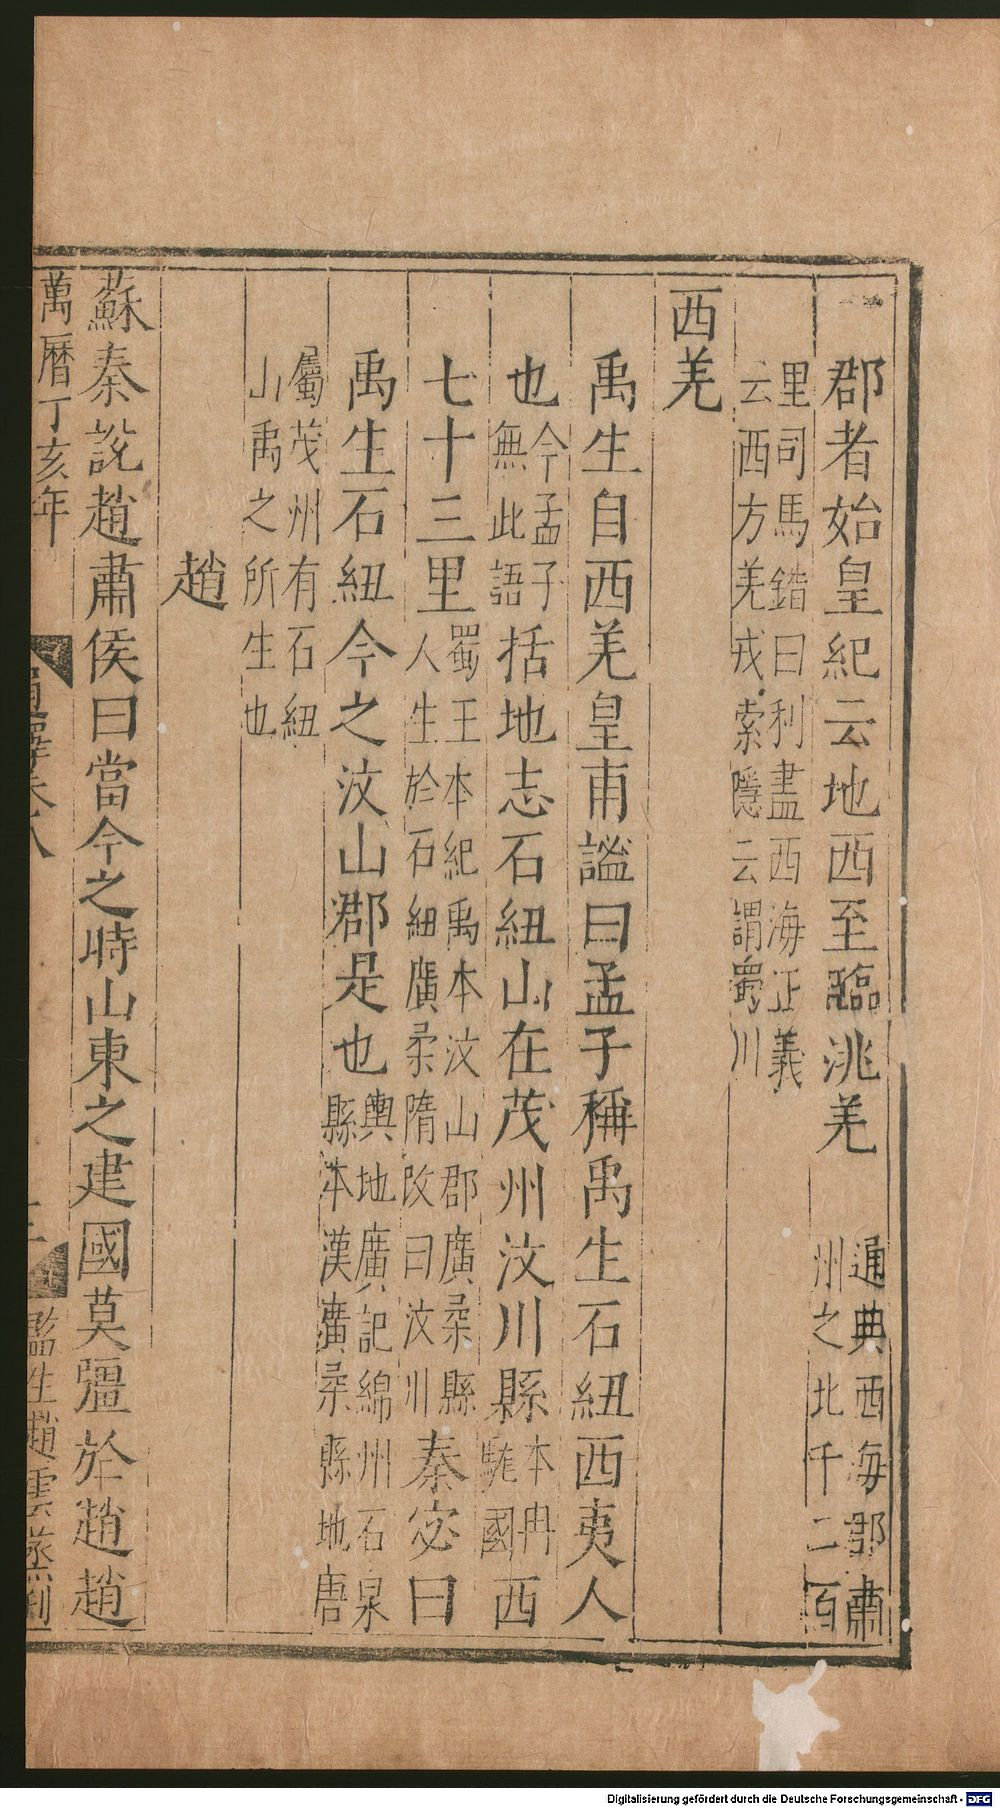 郡者始皇紀云地西至臨洮羌通典西海郡肅州之北千二百
里司馬錯曰利盡西海正義云西方羌戎索隱云謂蜀川
西羌
禹生自西羌皇甫謐曰孟子稱禹生石紐西夷人
也今孟子無此語括地志石紐山在茂州汶川縣本冉駹國西
七十三里蜀王本紀禹本汶山郡廣柔縣人生於石紐廣柔隋改曰汶川秦宓曰
禹生石紐今之汶山郡是也輿地廣記綿州石泉縣本漢廣柔縣地唐
屬茂州有石紐山禹之所生也
趙
蘇秦說趙肅侯曰當今之時山東之建國莫彊於趙趙
萬曆丁亥年
通釋卷八
監生趙雲烝刊
Digitalisierung gefördert durch die Deutsche Forschungsgemeinschaft - DFG